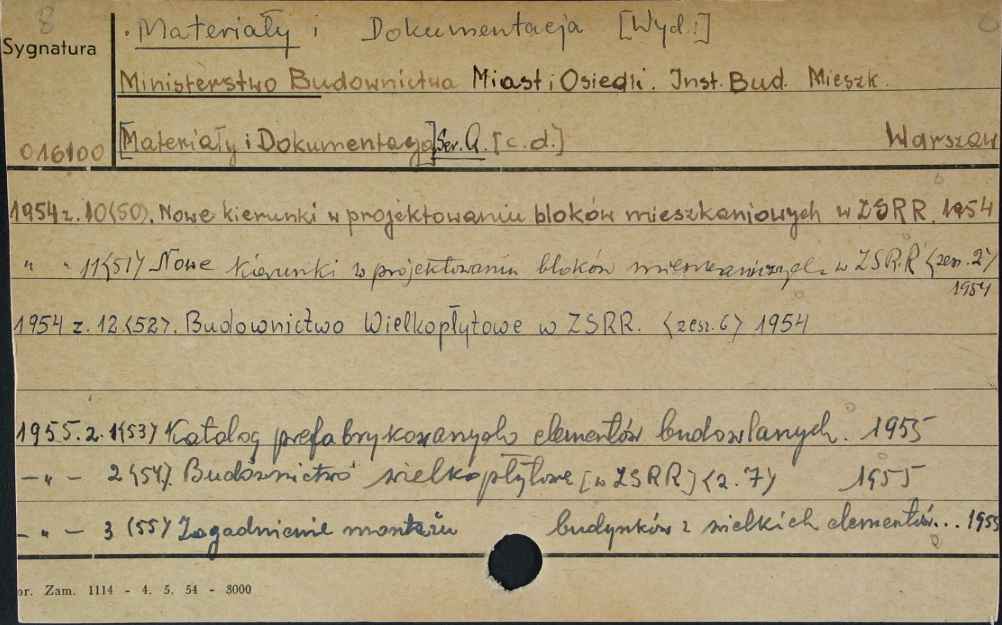 8
· Materiały i Dokumentacja [Wyd.]
Sygnatura
Ministerstwo Budownictwa Miast i Osiedli. Inst. Bud. Mieszk.
016100
[Materiały i Dokumentacja] Ser. Q. [c.d.] Warszaw
1954 z. 10(50). Nowe kierunki w projektowaniu bloków mieszkaniowych w ZSRR. 1954
" " 11(51) Nowe kierunki w projektowaniu bloków mieszkaniowych w ZSRR (zesz. 2)
1954
1954 z. 12(52). Budownictwo Wielkopłytowe w ZSRR. (zesz. 6) 1954
1955. z. 1(53) Katalog prefabrykowanych elementów budowlanych. 1955
– " – 2(54). Budownictwo wielkopłytowe [w ZSRR] (z. 7) 1955
– " – 3 (55) Zagadnienie montażu budynków z wielkich elementów... 1955
or. Zam. 1114 - 4. 5. 54 - 3000